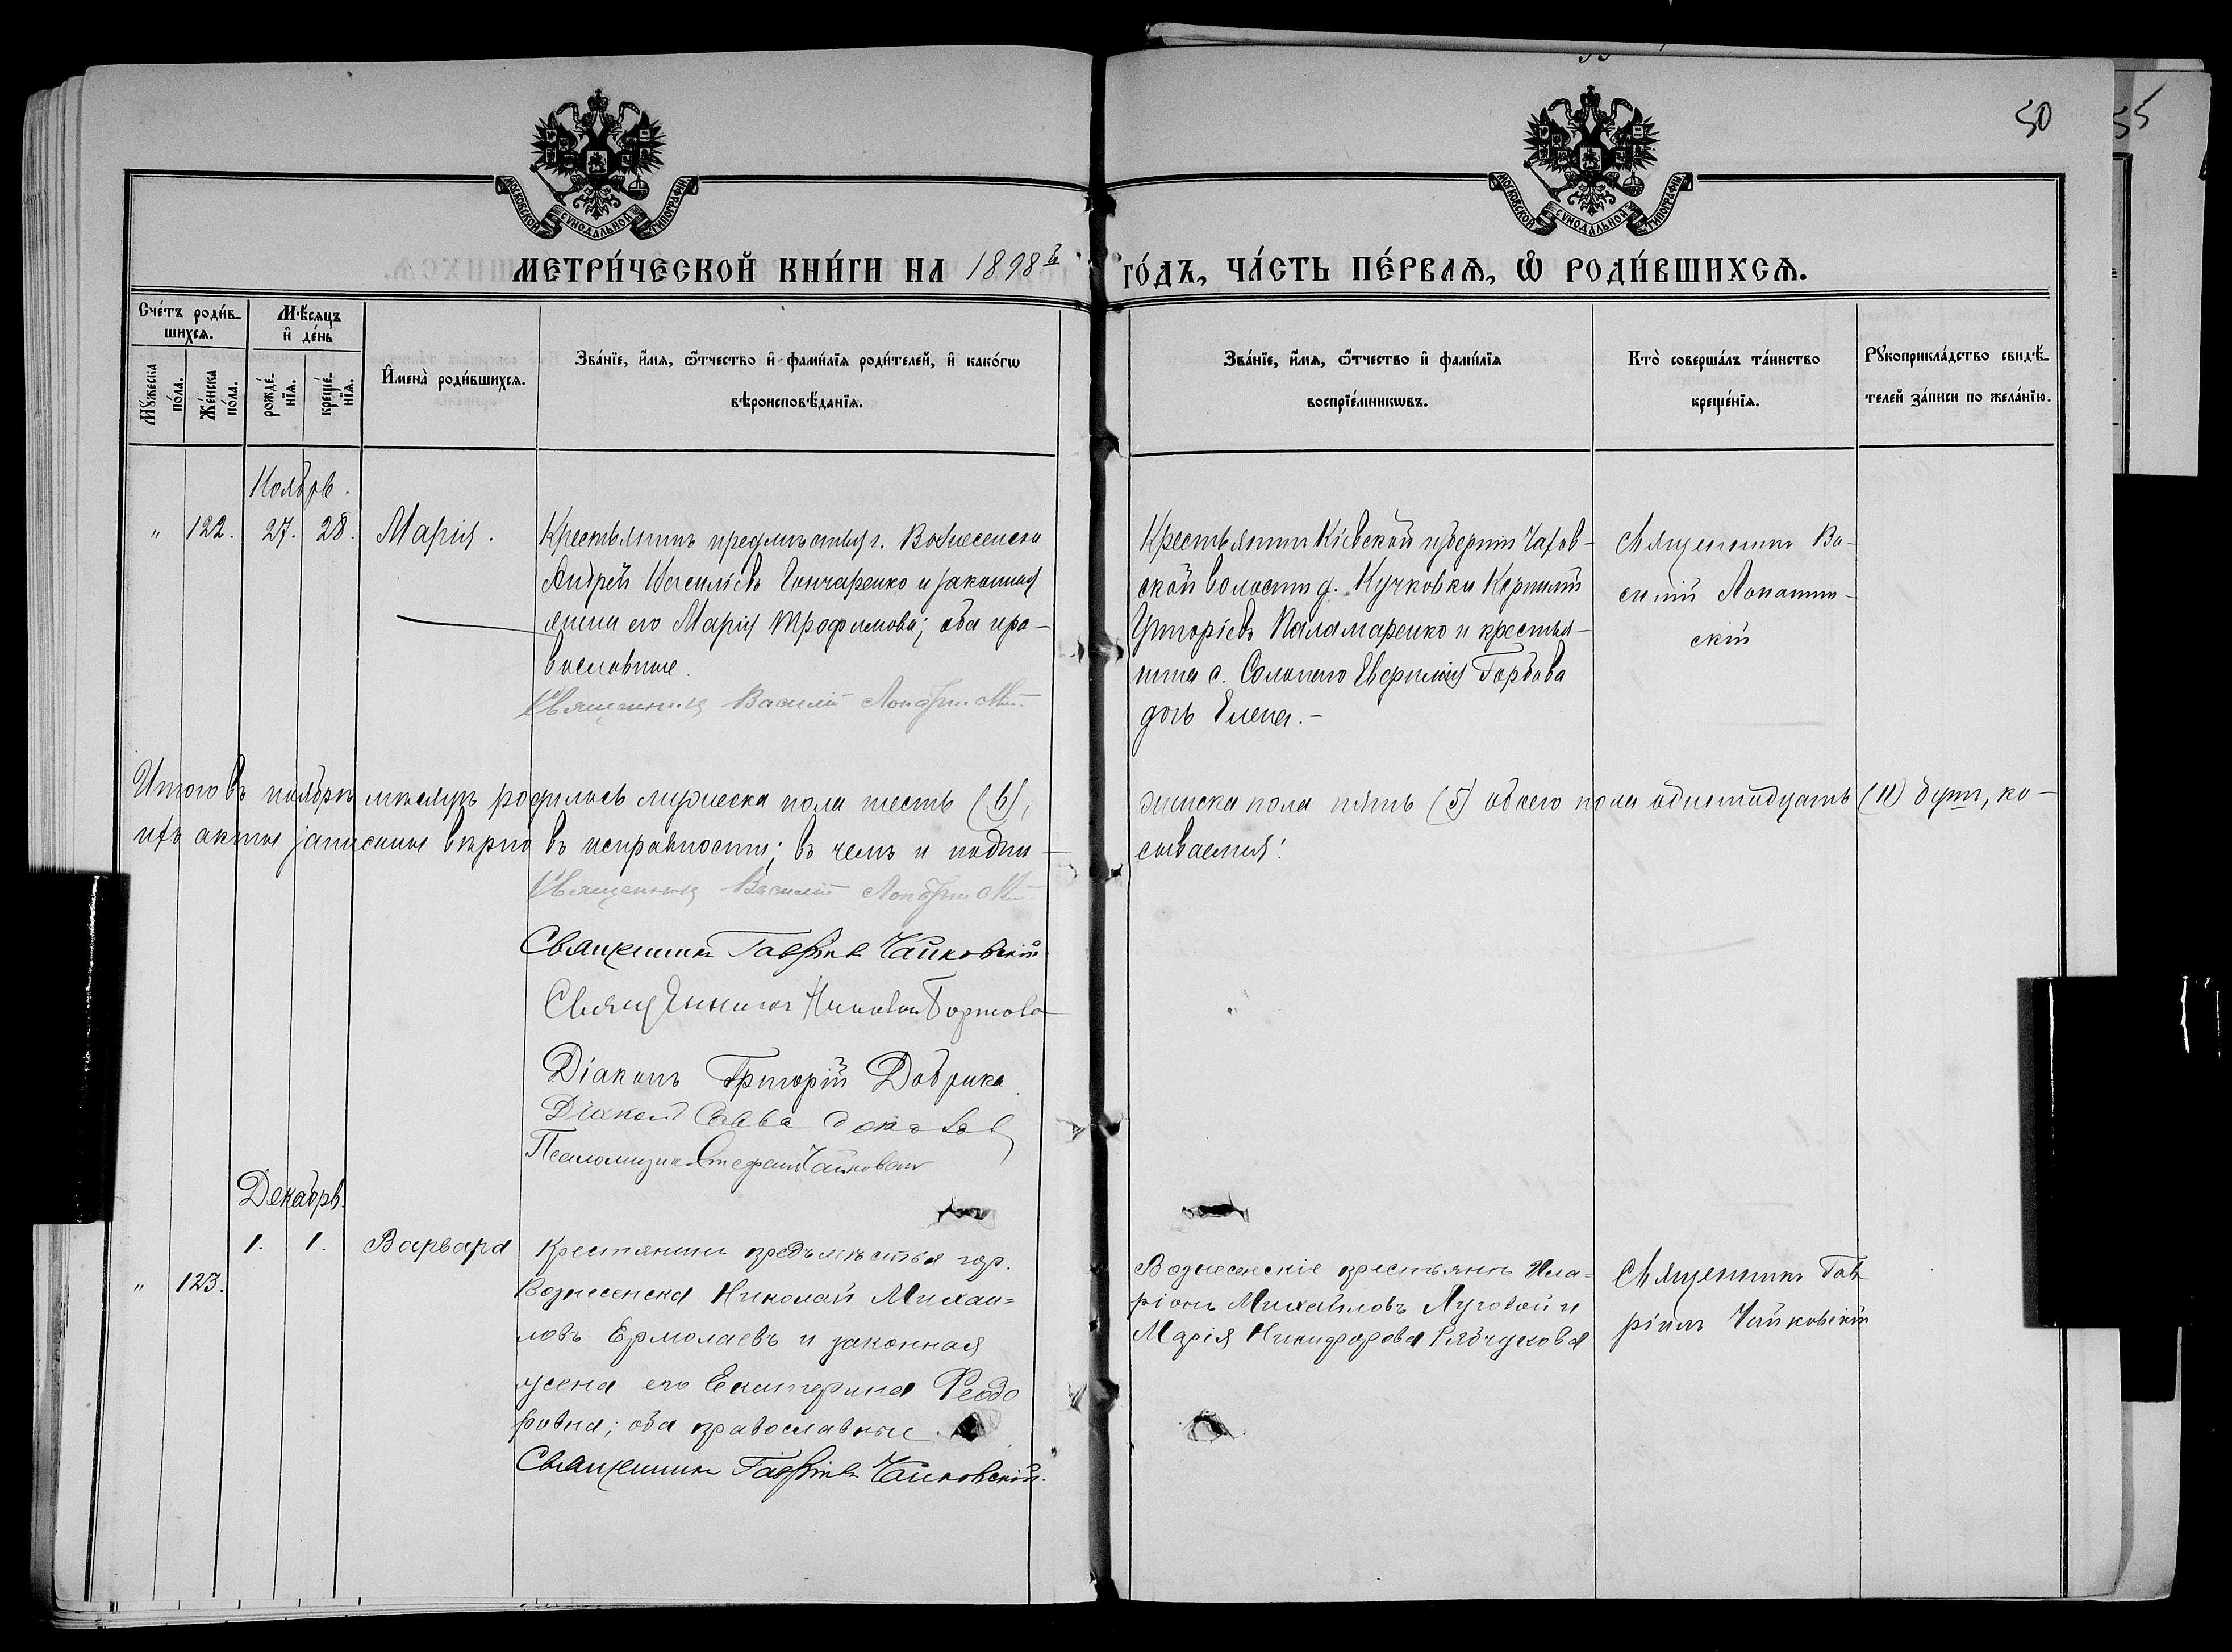 50
55
МОСКОВСКОЙ СУНОДАЛЬНОЙ ТИПОГРАФІИ
МОСКОВСКОЙ СУНОДАЛЬНОЙ ТИПОГРАФІИ
МЕТРИ́ЧЕСКОЙ КНИ́ГИ НА 1898й ГО́ДЪ, ЧА́СТЬ ПЕ́РВАѦ, Ѿ РОДИ́ВШИХСѦ.
Сче́тъ роди́в-
шихсѧ.
Мꙋ́жеска
по́ла.
Же́нска
по́ла.
Мѣ́сѧцъ
и҆ де́нь
рожде́-
нїѧ.
креще́-
нїѧ.
И҆мена̀ роди́вшихсѧ.
Зва́нїе, и҆́мѧ, ѻ҆́тчество и҆ фами́лїѧ роди́телей, и҆ како́гѡ
вѣроисповѣ́данїѧ.
Зва́нїе, и҆́мѧ, ѻ҆́тчество и҆ фами́лїѧ
воспрїе́мникѡвъ.
Кто̀ соверша́лъ та́инство
креще́нїѧ.
Рꙋкоприкла́дство свидѣ́-
телей за́писи по жела́нїю.
Ноябрь.
" 122. 27. 28. Марія.
Крестьянинъ предмѣстья г. Вознесенска
Андрей Василіевъ Гончаренко и законная
жена его Марія Трофимова; оба пра-
вославные.
Священникъ Василій
Крестьянинъ Кіевской губерніи
ской волости д. Кучковки Корнилій
Григоріевъ Паламаренко и крестья-
нина с. Евфимія Горбова
дочь Елена.-
Священникъ Ва-
силій Лопатин-
скій
Итого въ ноябрѣ мѣсяцѣ родилось мужеска пола шесть (6), женска пола пять (5) обоего пола одиннадцать (11) душъ, ко-
ихъ акты записаны вѣрно въ исправности; въ чемъ и подпи-сываемся:
Священникъ Василій
Священникъ Гавріилъ Чайковскій
Священникъ Николай
Діаконъ Григорій Добрика
Діаконъ Савва
Псаломщикъ Стефанъ
Декабрь.
" 123. 1. 1. Варвара
Крестянинъ предъмѣстья гор.
Вознесенска Николай Михаи=
ловъ Ермолаевъ и законная
жена его Екатерина Феодо
ровна; оба православные.
Священникъ Гавріилъ Чайковскій.
Вознесенскіе крестьянъ Ила=
ріонъ Михайловъ Луговой и
Марія Никифорова Рябчукова
Священникъ Гав
ріилъ Чайковскій